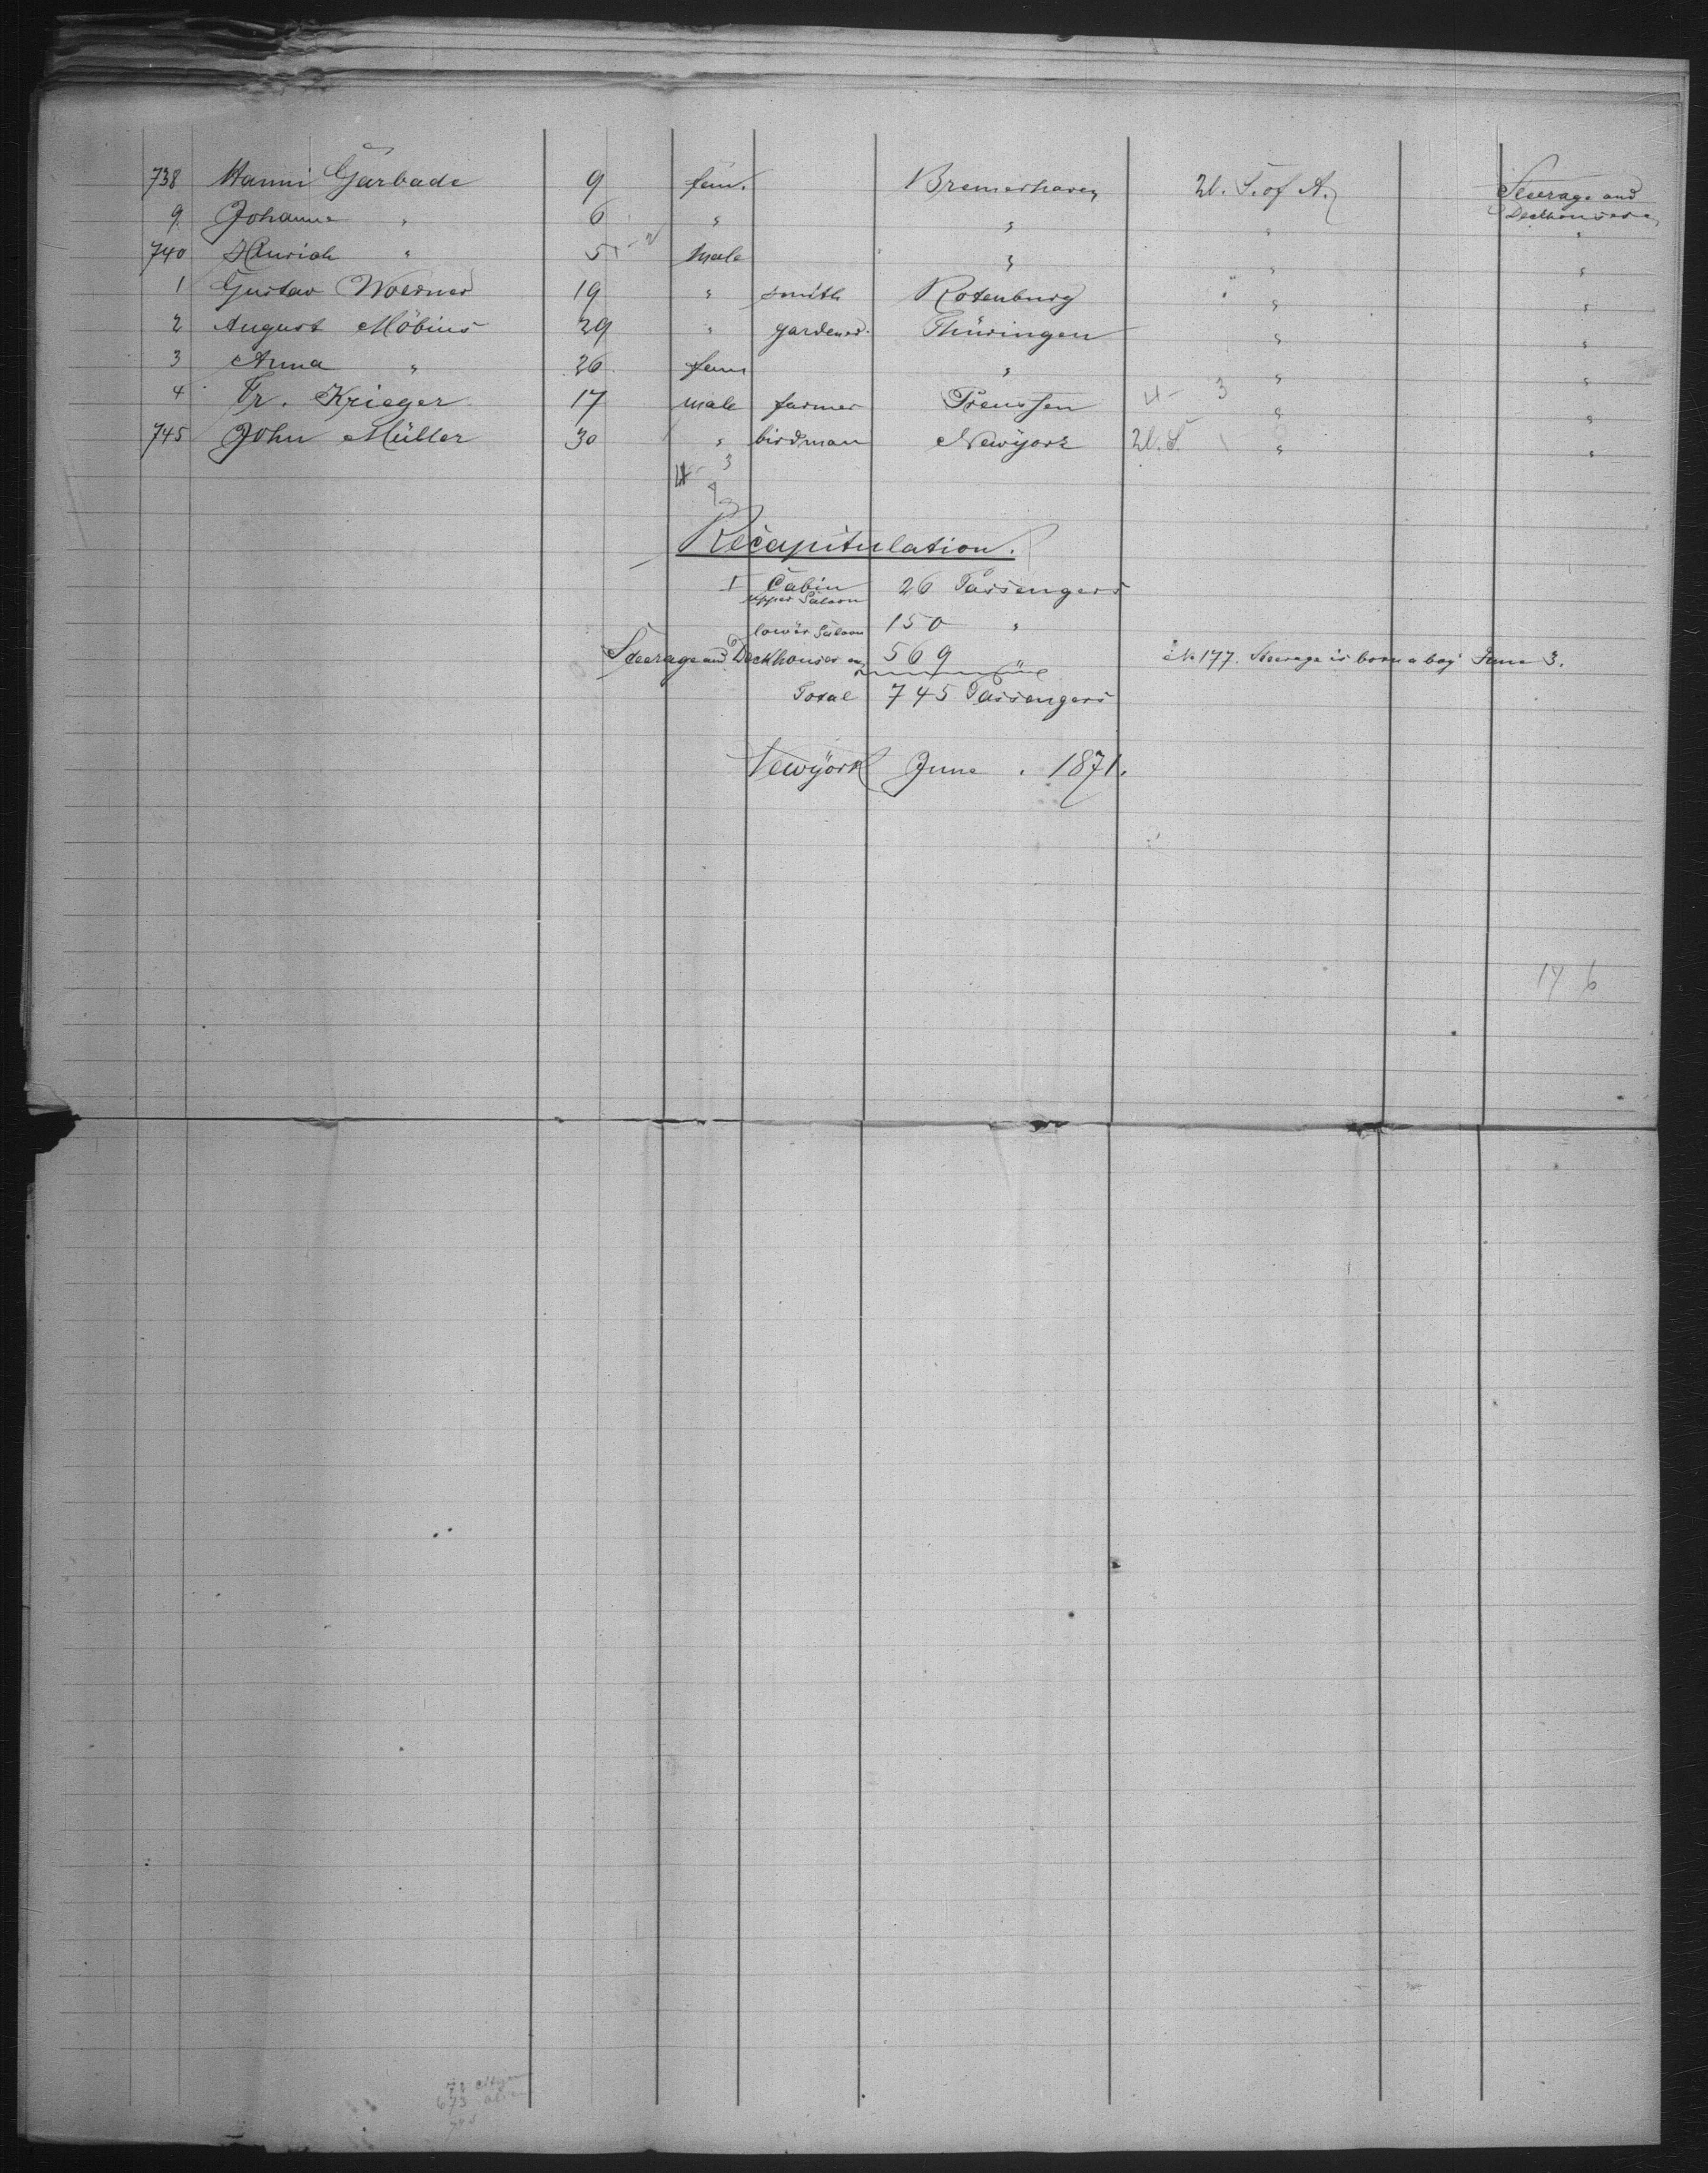 738 Hanni Garbade 9 fem. Bremerhaven U. S. of A. Steerage and Deckhouses
9 Johanne " 6 " " " "
740 Hinrich " 5 male " " "
1 Gustav Woerner 19 " smith Rotenburg " "
2 August Möbius 29 " gardener Thüringen " "
3 Anna " 26 fem " " "
4 Fr. Krieger 17 male farmer Preussen 4 - 3 " "
745 John Müller 30 " birdman Newÿork U. S. 1 " "
4 - 3
Recapitulation.
I Cabin
upper Saloon 26 Passengers
lower Saloon 150 "
Steerage and Deckhouses 569
№ 177. Steerage is born a boy June 3.
Total 745 Passengers
Newÿork June . 1871.
17 6
72 citizen
673 alien
745